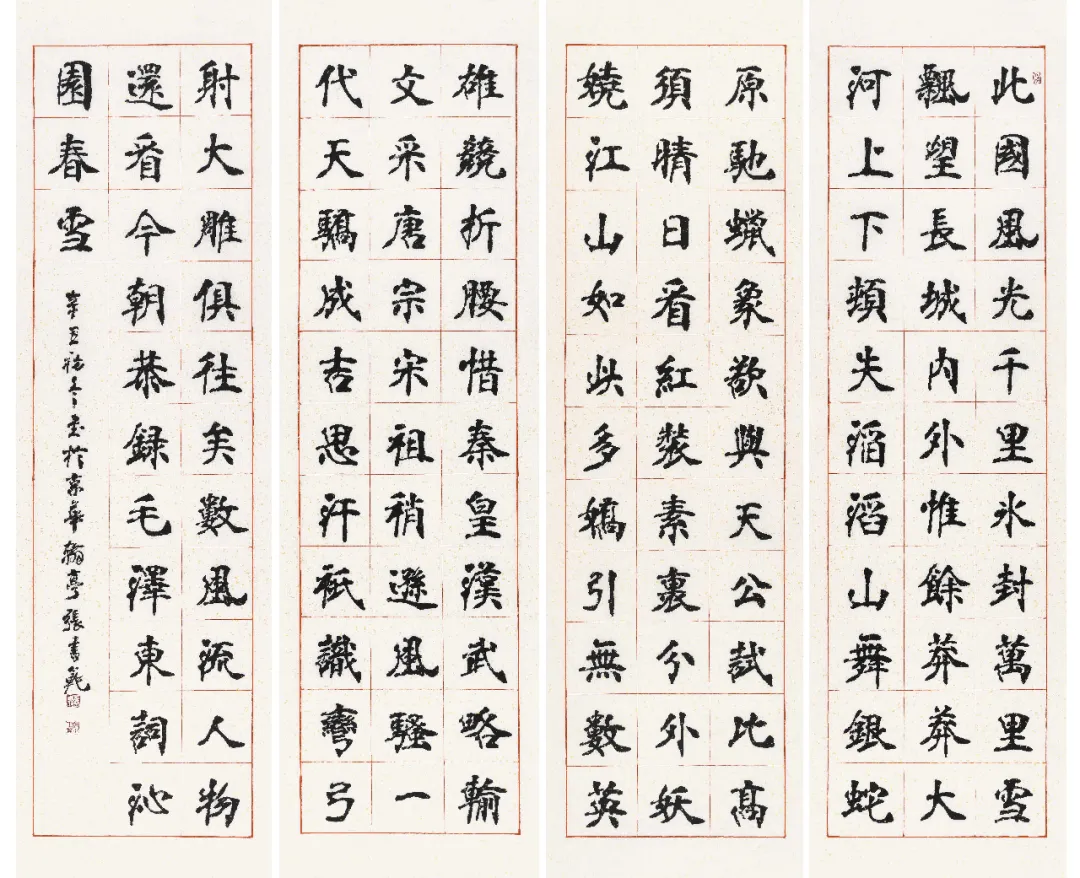 北國風光千里冰封萬里雪
飄望長城內外惟餘莽莽大
河上下頓失滔滔山舞銀蛇
原馳蠟象欲與天公試比高
須晴日看紅裝素裹分外妖
嬈江山如此多嬌引無數英
雄競折腰惜秦皇漢武略輸
文采唐宗宋祖稍遜風騷一
代天驕成吉思汗祇識彎弓
射大雕俱往矣數風流人物
還看今朝恭録毛澤東詞沁
園春雪
辛丑初冬書於京華翰亭張書範